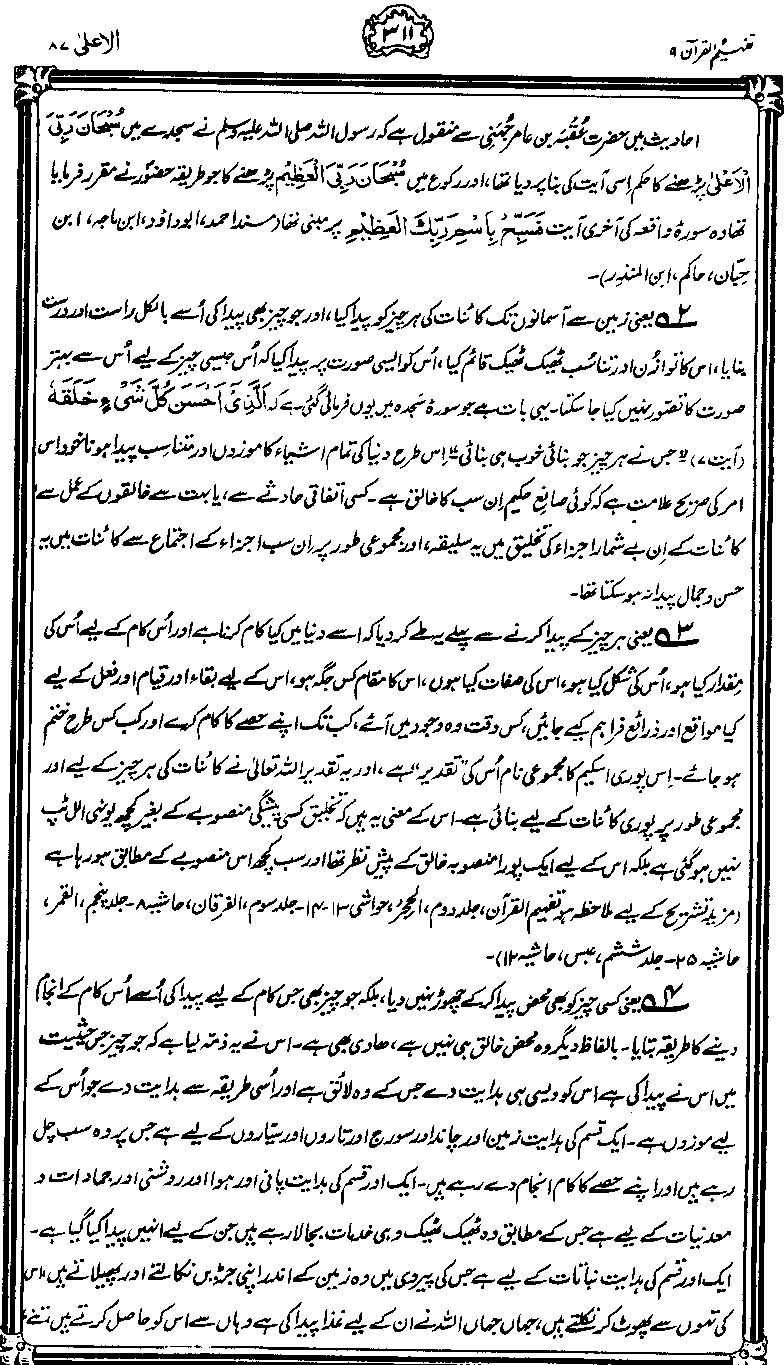 تفہیم القرآن ۹
۳۱۱
الاعلیٰ ۸۷
احادیث میں حضرت عُقبہ بن عامر جُہَنِی سے منقول ہے کہ رسول اللہ صلی اللہ علیہ وسلم نے سجدے میں سُبْحَانَ رَبِّیَ
الْاَعْلٰی پڑھنے کا حکم اِسی آیت کی بنا پر دیا تھا، اور رکوع میں سُبْحَانَ رَبِّیَ الْعَظِیْمِ پڑھنے کا جو طریقہ حضورؐ نے مقرر فرمایا
تھا وہ سورۂ واقعہ کی آخری آیت فَسَبِّحْ بِاسْمِ رَبِّكَ الْعَظِیْمِ پر مبنی تھا (مسند احمد، ابوداؤد، ابن ماجہ، ابن
حِبّان، حاکم، ابن المنذر)۔
۲؎ یعنی زمین سے آسمانوں تک کائنات کی ہر چیز کو پیدا کیا، اور جو چیز بھی پیدا کی اُسے بالکل راست اور درست
بنایا، اس کا توازُن اور تناسُب ٹھیک ٹھیک قائم کیا، اُس کو ایسی صورت پر پیدا کیا کہ اُس جیسی چیز کے لیے اُس سے بہتر
صورت کا تصوّر نہیں کیا جا سکتا۔ یہی بات ہے جو سورۂ سجدہ میں یوں فرمائی گئی ہے کہ اَلَّذِیْٓ اَحْسَنَ كُلَّ شَیْءٍ خَلَقَهٗ
(آیت ۷) ”جس نے ہر چیز جو بنائی خوب ہی بنائی“۔ اِس طرح دنیا کی تمام اشیاء کا موزوں اور متناسب پیدا ہونا خود اس
امر کی صریح علامت ہے کہ کوئی صانع حکیم اِن سب کا خالق ہے۔ کسی اتفاقی حادثے سے، یا بہت سے خالقوں کے عمل سے
کائنات کے اِن بے شمار اجزاء کی تخلیق میں یہ سلیقہ، اور مجموعی طور پر اِن سب اجزاء کے اجتماع سے کائنات میں یہ
حسن و جمال پیدا نہ ہو سکتا تھا۔
۳؎ یعنی ہر چیز کے پیدا کرنے سے پہلے یہ طے کر دیا کہ اسے دنیا میں کیا کام کرنا ہے اور اُس کام کے لیے اُس کی
مِقدار کیا ہو، اُس کی شکل کیا ہو، اس کی صفات کیا ہوں، اس کا مقام کس جگہ ہو، اس کے لیے بقاء اور قیام اور فعل کے لیے
کیا مواقع اور ذرائع فراہم کیے جائیں، کس وقت وہ وجود میں آئے، کب تک اپنے حصے کا کام کرے اور کب کس طرح ختم
ہو جائے۔ اِس پوری اسکیم کا مجموعی نام اُس کی ”تقدیر“ ہے، اور یہ تقدیر اللہ تعالیٰ نے کائنات کی ہر چیز کے لیے اور
مجموعی طور پر پوری کائنات کے لیے بنائی ہے۔ اس کے معنی یہ ہیں کہ تخلیق کسی پیشگی منصوبے کے بغیر کچھ یونہی الل ٹپ
نہیں ہو گئی ہے بلکہ اس کے لیے ایک پورا منصوبہ خالق کے پیش نظر تھا اور سب کچھ اس منصوبے کے مطابق ہو رہا ہے
(مزید تشریح کے لیے ملاحظہ ہو تفہیم القرآن، جلد دوم، الحِجْر، حواشی ۱۳-۱۴۔ جلد سوم، الفرقان، حاشیہ ۸۔ جلد پنجم، القمر،
حاشیہ ۲۵۔ جلد ششم، عبس، حاشیہ ۱۲)۔
۴؎ یعنی کسی چیز کو بھی محض پیدا کر کے چھوڑ نہیں دیا، بلکہ جو چیز بھی جس کام کے لیے پیدا کی اُسے اُس کام کے انجام
دینے کا طریقہ بتایا۔ بالفاظ دیگر وہ محض خالق ہی نہیں ہے، ھادی بھی ہے۔ اس نے یہ ذمّہ لیا ہے کہ جو چیز جس حیثیت
میں اس نے پیدا کی ہے اس کو ویسی ہی ہدایت دے جس کے وہ لائق ہے اور اُسی طریقہ سے ہدایت دے جو اُس کے
لیے موزوں ہے۔ ایک قسم کی ہدایت زمین اور چاند اور سورج اور تاروں اور سیّاروں کے لیے ہے جس پر وہ سب چل
رہے ہیں اور اپنے حصے کا کام انجام دے رہے ہیں۔ ایک اور قسم کی ہدایت پانی اور ہوا اور روشنی اور جمادات و
معدنیات کے لیے ہے جس کے مطابق وہ ٹھیک ٹھیک وہی خدمات بجا لا رہے ہیں جن کے لیے انہیں پیدا کیا گیا ہے۔
ایک اور قسم کی ہدایت نباتات کے لیے ہے جس کی پیروی میں وہ زمین کے اندر اپنی جڑیں نکالتے اور پھیلاتے ہیں، اس
کی تہوں سے پھوٹ کر نکلتے ہیں، جہاں جہاں اللہ نے ان کے لیے غذا پیدا کی ہے وہاں سے اس کو حاصل کرتے ہیں، تنے،